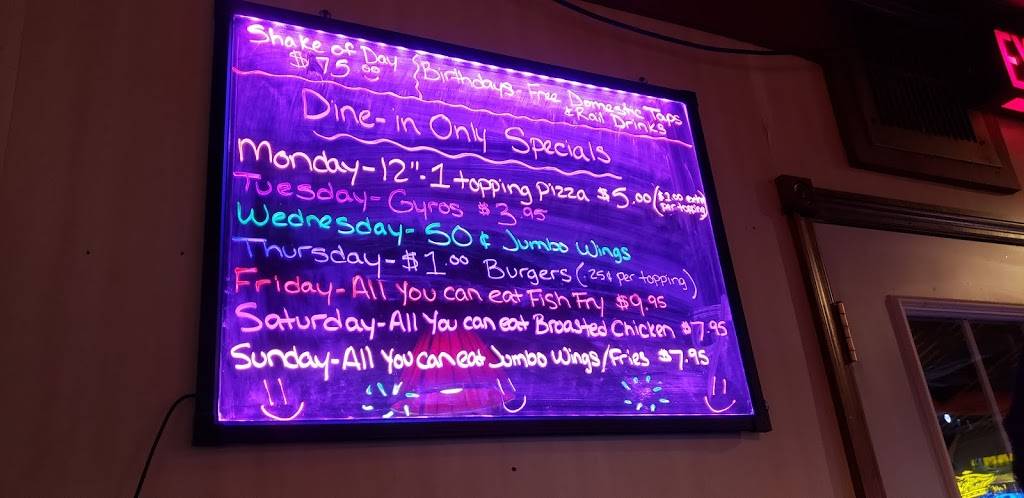 Shake of Day
$75.00
Birthdays - Free Domestic Taps
& Rail Drinks
Dine-in Only Specials
Monday - 12" - 1 topping Pizza $5.00 ($1.00 extra
per topping)
Tuesday - Gyros $3.95
Wednesday - 50¢ Jumbo Wings
Thursday - $1.00 Burgers (.25¢ per topping)
Friday - All you can eat Fish Fry $9.95
Saturday - All You can eat Broasted Chicken $7.95
Sunday - All You can eat Jumbo Wings/Fries $7.95